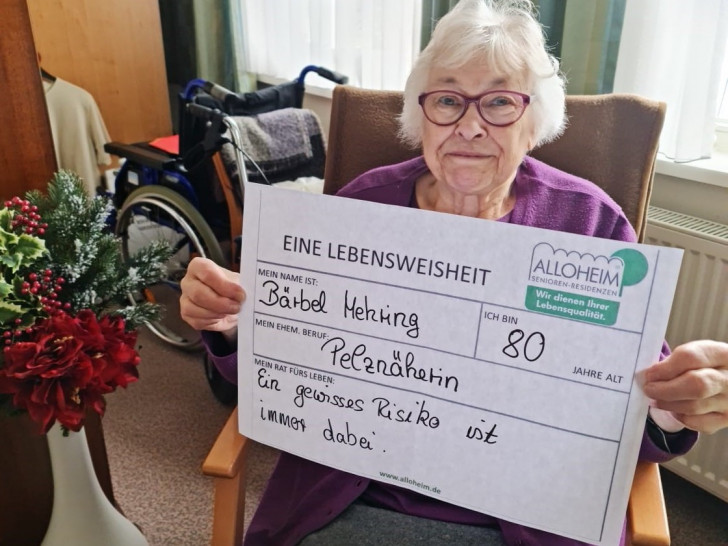 EINE LEBENSWEISHEIT
ALLOHEIM
SENIOREN-RESIDENZEN
Wir dienen Ihrer
Lebensqualität.
MEIN NAME IST:
Bärbel Mehring
ICH BIN
80
JAHRE ALT
MEIN EHEM. BERUF:
Pelznäherin
MEIN RAT FÜRS LEBEN:
Ein gewisses Risiko ist
immer dabei.
www.alloheim.de